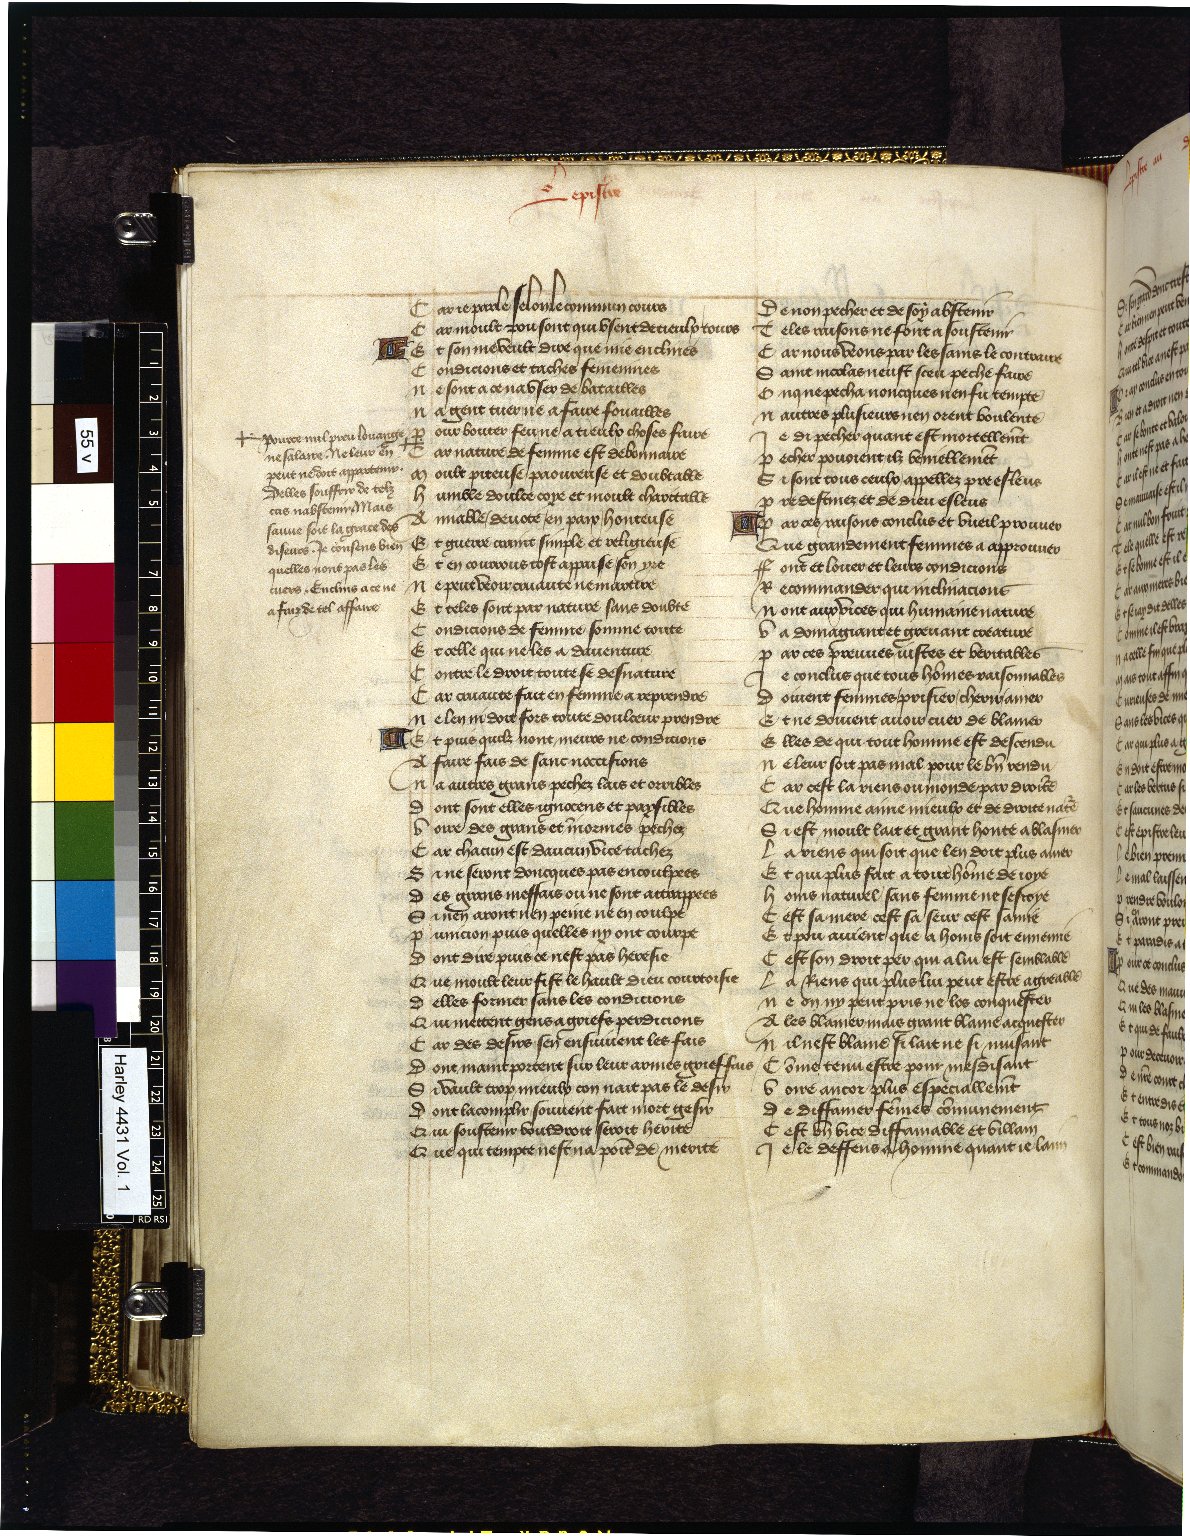 Lepistre
Car ie parle selon le commun cours
Car moult pou sont qui vsent de tieulx tours
Et son me veult dire que mie enclines
Condicions et taches femenines
Ne sont a ce nabuser de batailles
Na gent tuer ne a faire fouailles
Pour bouter feu ne a tieulx choses faire
Car nature de femme est debonnaire
Moult piteuse paoureuse et doubtable
Humble doulce coye et moult charitable
Amiable deuote en paix honteuse
Et guerre craint simple et religieuse
Et en courroux tost appaise son yre
Ne peut veoir cruaute ne martire
Et teles sont par nature sans doubte
Condicions de femme somme toute
Et celle qui ne les a dauenture
Contre le droit toute se desnature
Car cruaute fait en femme a reprendre
Ne len ni doit fors toute doulceur prendre
Et puis quilz nont meurs ne condicions
A faire fais de sanc noccisions
Na autres grans pechez lais et orribles
Dont sont elles ignocens et paysibles
Voire des grans et enormes pechez
Car chacun est daucun vice tachez
Si ne seront doncques pas encoulpees
Des grans meffais ou ne sont attrappees
Si nen aront nen peine ne en coulpe
Punicion puis quelles ny ont courpe
Dont dire puis ce nest pas heresie
Que moult leur fist le hault dieu courtoisie
Delles former sans les condicions
Qui mettent gens a griefs perdicions
Car des desirs sen ensuiuent les fais
Dont maint portent sur leur armes grieffais
Si vault trop mieulx con nait pas le desir
Dont lacomplir souuent fait mort gesir
Qui soustenir vouldroit seroit herite
Que qui tempte nest na point de merite
+ Pource nul preu louange
ne salaire Ne leur en
peut ne doit appartenir
Delles souffrir de telz
cas nabstenir Mais
sauue soit la grace des
diseurs Je consens bien
quelles nont pas les
cuers Enclins a ce ne
a faire tel affaire
De non pecher et de soy abstenir
Teles raisons ne font a soustenir
Car nous veons par les sains le contraire
Saint nicolas neust sceu peche faire
Onq ne pecha noncques nen fu tempte
Nautres plusieurs nen orent voulente
Je di pecher quant est mortellement
Pecher pouoient ilz veniellement
Si sont tous ceulx appellez preesleus
Predestinez et de dieu esleus
Par ces raisons conclus et vueil prouuer
Que grandement femmes a approuuer
Font et louer et leurs condicions
Recommander qui inclinacions
Nont aux vices qui humaine nature
Va domagiant et greuant creature
Par ces preuues iustes et veritables
Je conclus que tous hommes raisonnables
Doiuent femmes prisier cherir amer
Et ne doiuent auoir cuer de blamer
Elles de qui tout homme est descendu
Ne leur soit pas mal pour le bien rendu
Car cest la riens ou monde par droite
Que homme aime mieulx et de droite nature
Si est moult lait et grant honte a blasmer
La riens qui soit que len doit plus amer
Et qui plus fait a tout homme de ioye
Homs naturel sans femme ne sesioye
Cest sa mere cest sa seur cest samie
Et pou auient que a homs soit ennemie
Cest son droit per qui a lui est semblable
La Riens qui plus lui peut estre agreable
Ne on ny peut pris ne los conquester
A les blamer mais grant blame acquester
Nil nest blame si lait ne si nuisant
Comme tenu estre pour mesdisant
Voire ancor plus especiallement
De diffamer femmes communement
Cest vn vice diffamable et villain
Je le deffens a homme quant ie laim
Lepistre au
55 v
Harley 4431 Vol. 1